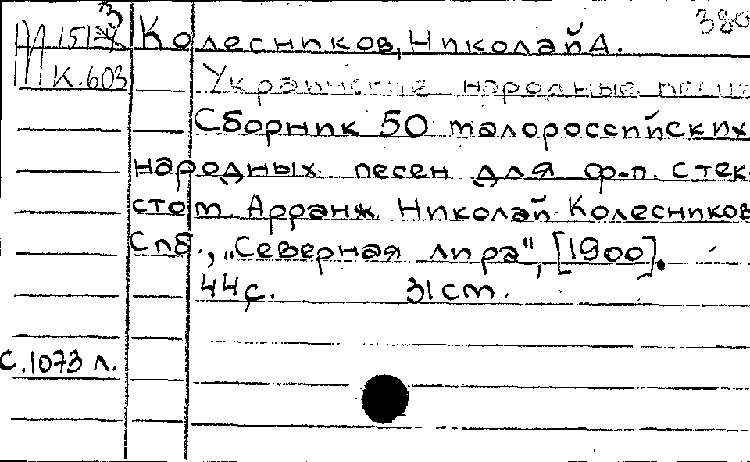 380
М 151 3 Колесников, Николай А.
К.603 Украинские народные песни
Сборник 50 малороссийских
народных песен для ф-п. с тек-
стом. Арранж. Николай Колесников
Спб., "Северная лира", [1900].
44 с. 31 см.
С.1073 л.